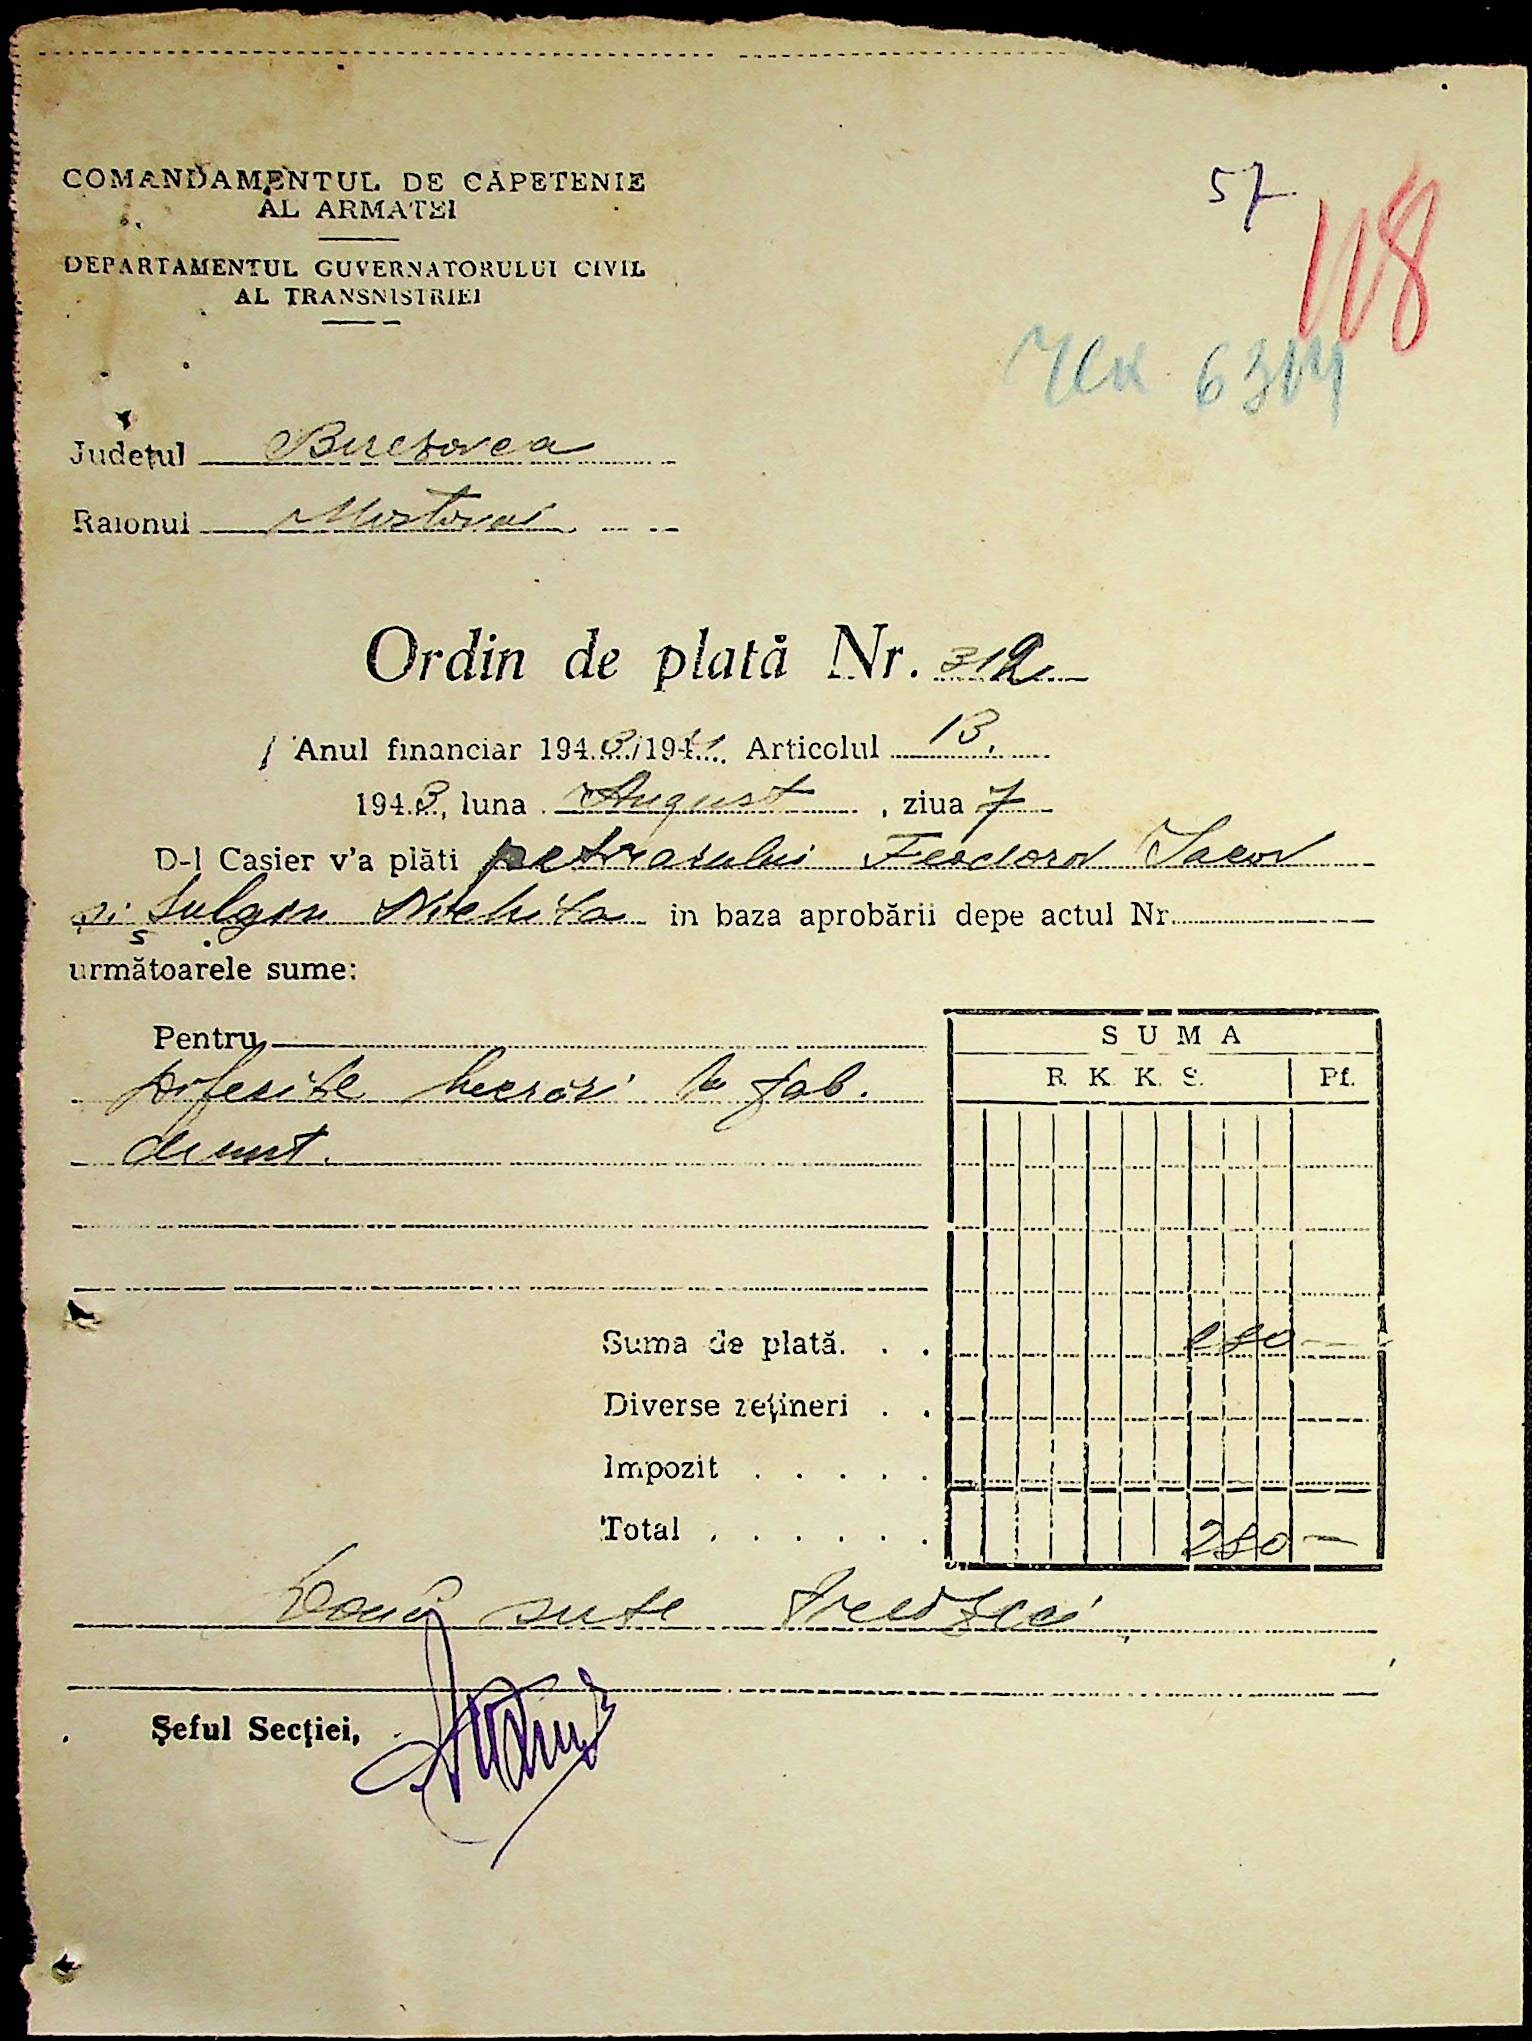 COMANDAMENTUL DE CĂPETENIE
AL ARMATEI
DEPARTAMENTUL GUVERNATORULUI CIVIL
AL TRANSNISTRIEI
57
118
Județul Berezovca
Raionul Mostovoi
Ordin de plată Nr. 312
Anul financiar 1943/1944 Articolul 13.
1943, luna August, ziua 7
D-l Casier v'a plăti petrarului Feodorov Iacov
și Nichita in baza aprobării depe actul Nr.
următoarele sume:
Pentru
diferite lucrări la fab.
de unt.
SUMA
R. K. K. S. Pf.
Suma de plată. . . 230 —
Diverse rețineri . .
Impozit . . . . .
Total . . . . . . 230 —
Două sute treizeci
Șeful Secției,